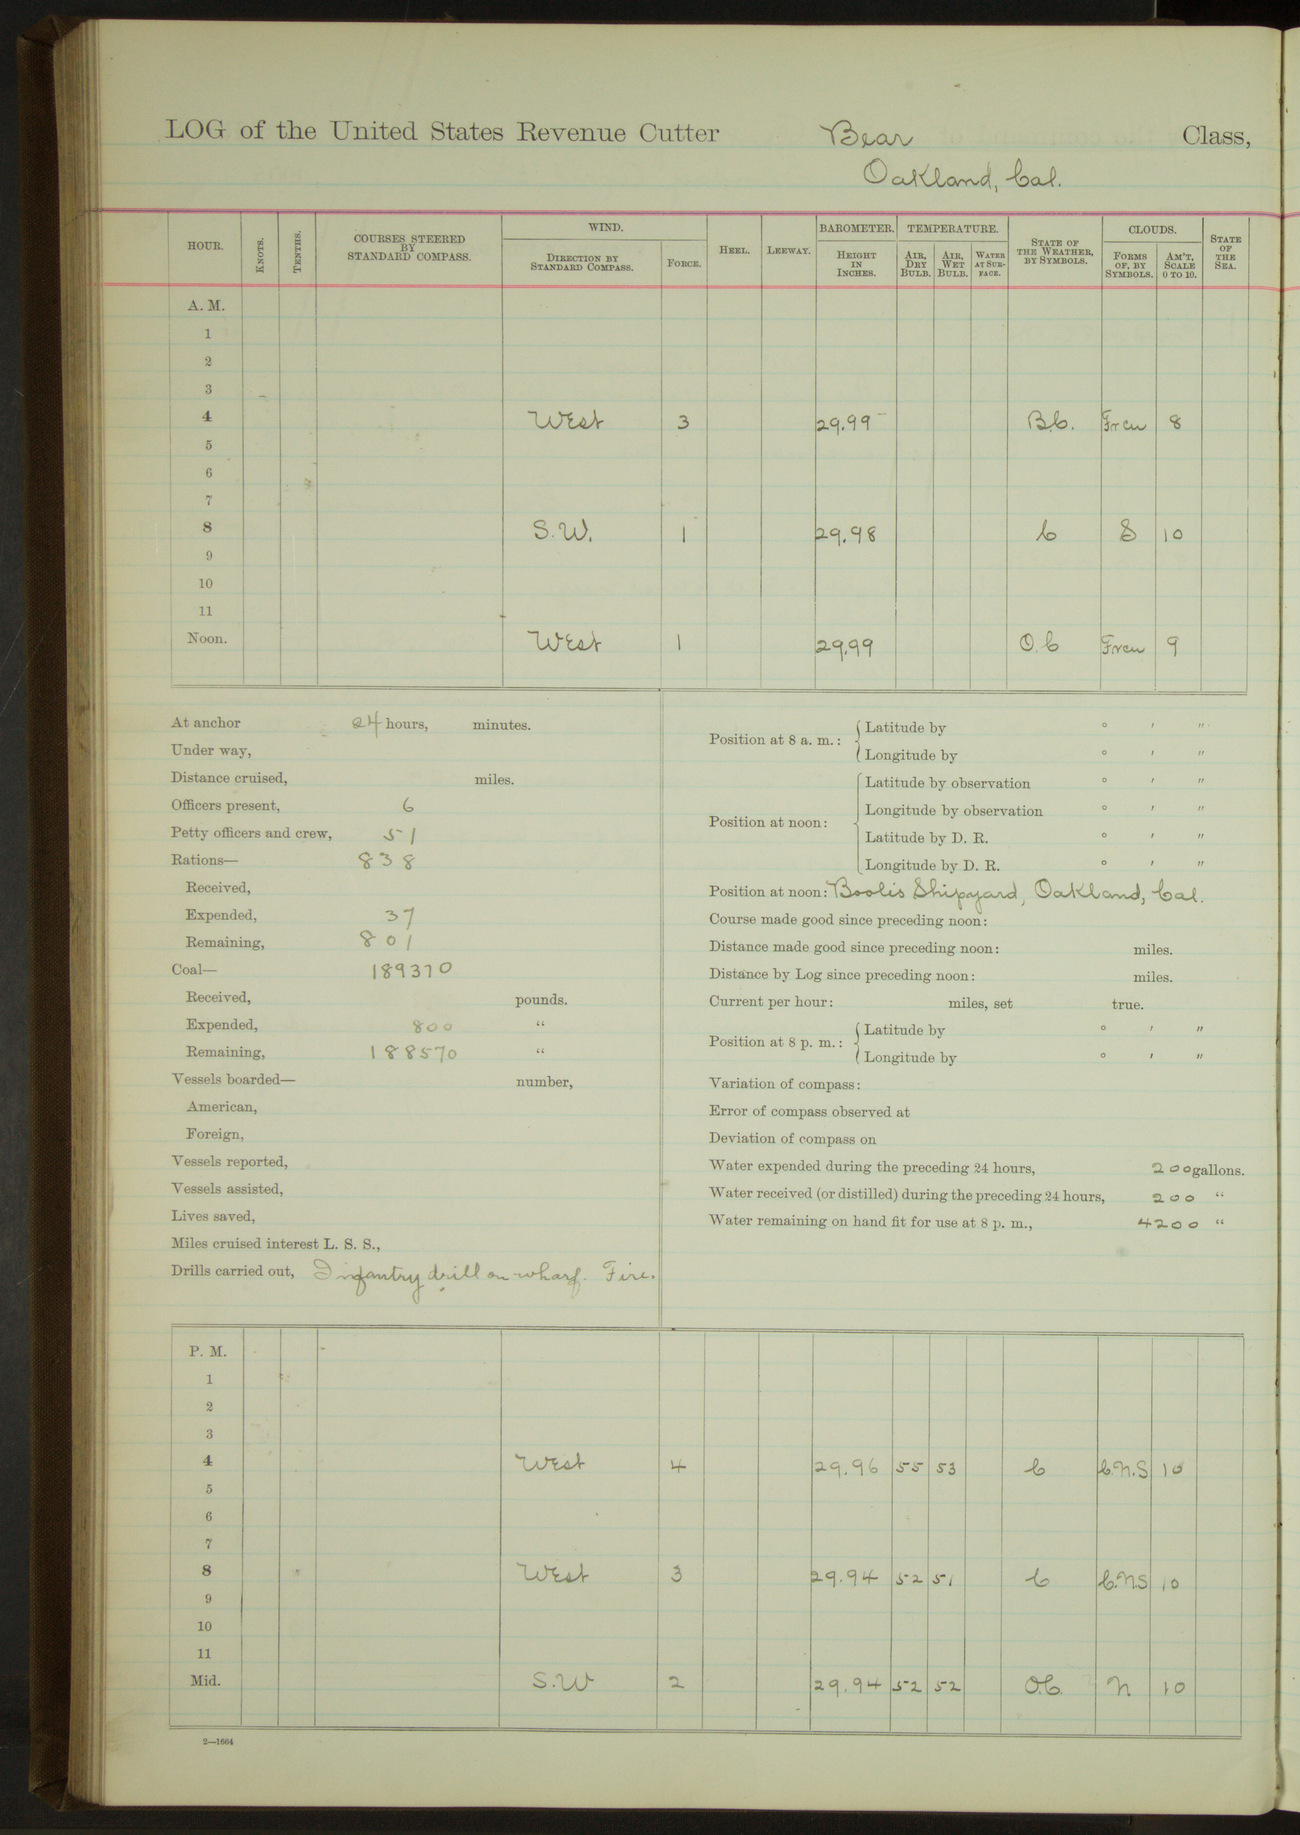 LOG of the United States Revenue Cutter Bear Class,
Oakland, Cal.
HOUR. KNOTS. TENTHS. COURSES STEERED BY STANDARD COMPASS. WIND. DIRECTION BY STANDARD COMPASS. FORCE. HEEL. LEEWAY. BAROMETER. HEIGHT IN INCHES. TEMPERATURE. AIR, DRY BULB. AIR, WET BULB. WATER AT SURFACE. STATE OF THE WEATHER, BY SYMBOLS. CLOUDS. FORMS OF, BY SYMBOLS. AM'T, SCALE 0 TO 10. STATE OF THE SEA.
A. M.
1
2
3
4 West 3 29.99 B.C. Frcu 8
5
6
7
8 S.W. 1 29.98 C S 10
9
10
11
Noon. West 1 29.99 O.C Frcu 9
At anchor 24 hours, minutes.
Under way,
Distance cruised, miles.
Officers present, 6
Petty officers and crew, 51
Rations— 838
Received,
Expended, 37
Remaining, 801
Coal— 189370
Received, pounds.
Expended, 800 "
Remaining, 188570 "
Vessels boarded— number,
American,
Foreign,
Vessels reported,
Vessels assisted,
Lives saved,
Miles cruised interest L. S. S.,
Drills carried out, Infantry drill on wharf. Fire.
Position at 8 a. m.: Latitude by ° ′ ″
Longitude by ° ′ ″
Position at noon: Latitude by observation ° ′ ″
Longitude by observation ° ′ ″
Latitude by D. R. ° ′ ″
Longitude by D. R. ° ′ ″
Position at noon: Shipyard, Oakland, Cal.
Course made good since preceding noon:
Distance made good since preceding noon: miles.
Distance by Log since preceding noon: miles.
Current per hour: miles, set true.
Position at 8 p. m.: Latitude by ° ′ ″
Longitude by ° ′ ″
Variation of compass:
Error of compass observed at
Deviation of compass on
Water expended during the preceding 24 hours, 200 gallons.
Water received (or distilled) during the preceding 24 hours, 200 "
Water remaining on hand fit for use at 8 p. m., 4200 "
P. M.
1
2
3
4 West 4 29.96 55 53 C C.N.S 10
5
6
7
8 West 3 29.94 52 51 C C.N.S 10
9
10
11
Mid. S.W 2 29.94 52 52 O.C. N 10
2—1664